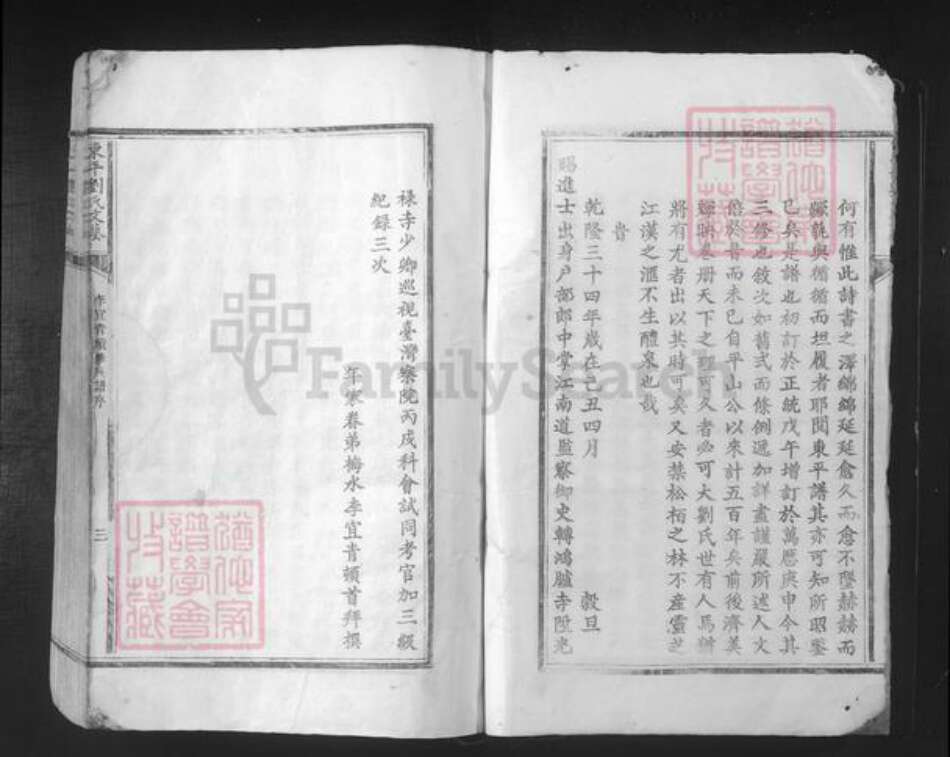 何有惟此詩書之澤綿綿延延愈久而愈不墜赫赫而
巍巍與循循而坦履者耶閱東平譜其亦可知所昭鑒
已矣是譜也初訂於正統戊午增訂於萬曆庚申今其
三修也敘次如舊式而條例遞加詳盡謹嚴所述人文
倍於昔而未已自平山公以來計五百年矣前後濟美
輝映卷册天下之理可久者必可大劉氏世有人焉
將有尤者出以其時可矣又安禁松栢之林不產靈芝
江漢之滙不生醴泉也哉
旹
乾隆三十四年歲在己丑四月 穀旦
賜進士出身戶部郎中掌江南道監察御史轉鴻臚寺陞光
祿寺少卿巡視臺灣察院丙戌科會試同考官加三級
紀錄三次
年寒眷弟梅水李宜青頓首拜撰
東平劉氏
李宜青 譜序
三
FamilySearch
譜學會
譜學會